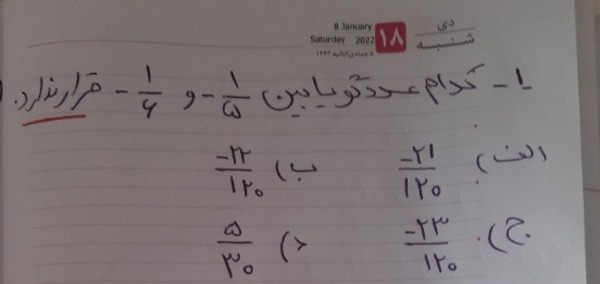 8 January دی
Saturday 2022 ۱۸ شنبه
۵ جمادی الثانیه ۱۴۴۳
۱- کدام عدد گویا بین ۱/۵ - و ۱/۶ - قرار ندارد.
الف) -۲۱/۱۲۰ ب) -۲۲/۱۲۰
ج) -۲۳/۱۲۰ د) ۵/۳۰